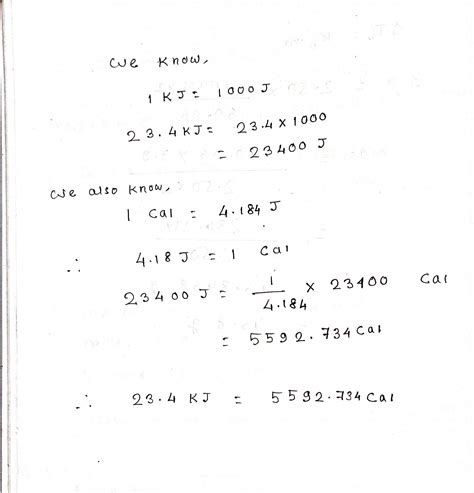 We know,
1 KJ = 1000 J
23.4 KJ = 23.4 × 1000
= 23400 J
We also know,
1 Cal = 4.184 J
∴ 4.18 J = 1 Cal
23400 J = 1/4.184 × 23400 Cal
= 5592.734 Cal
∴ 23.4 KJ = 5592.734 Cal